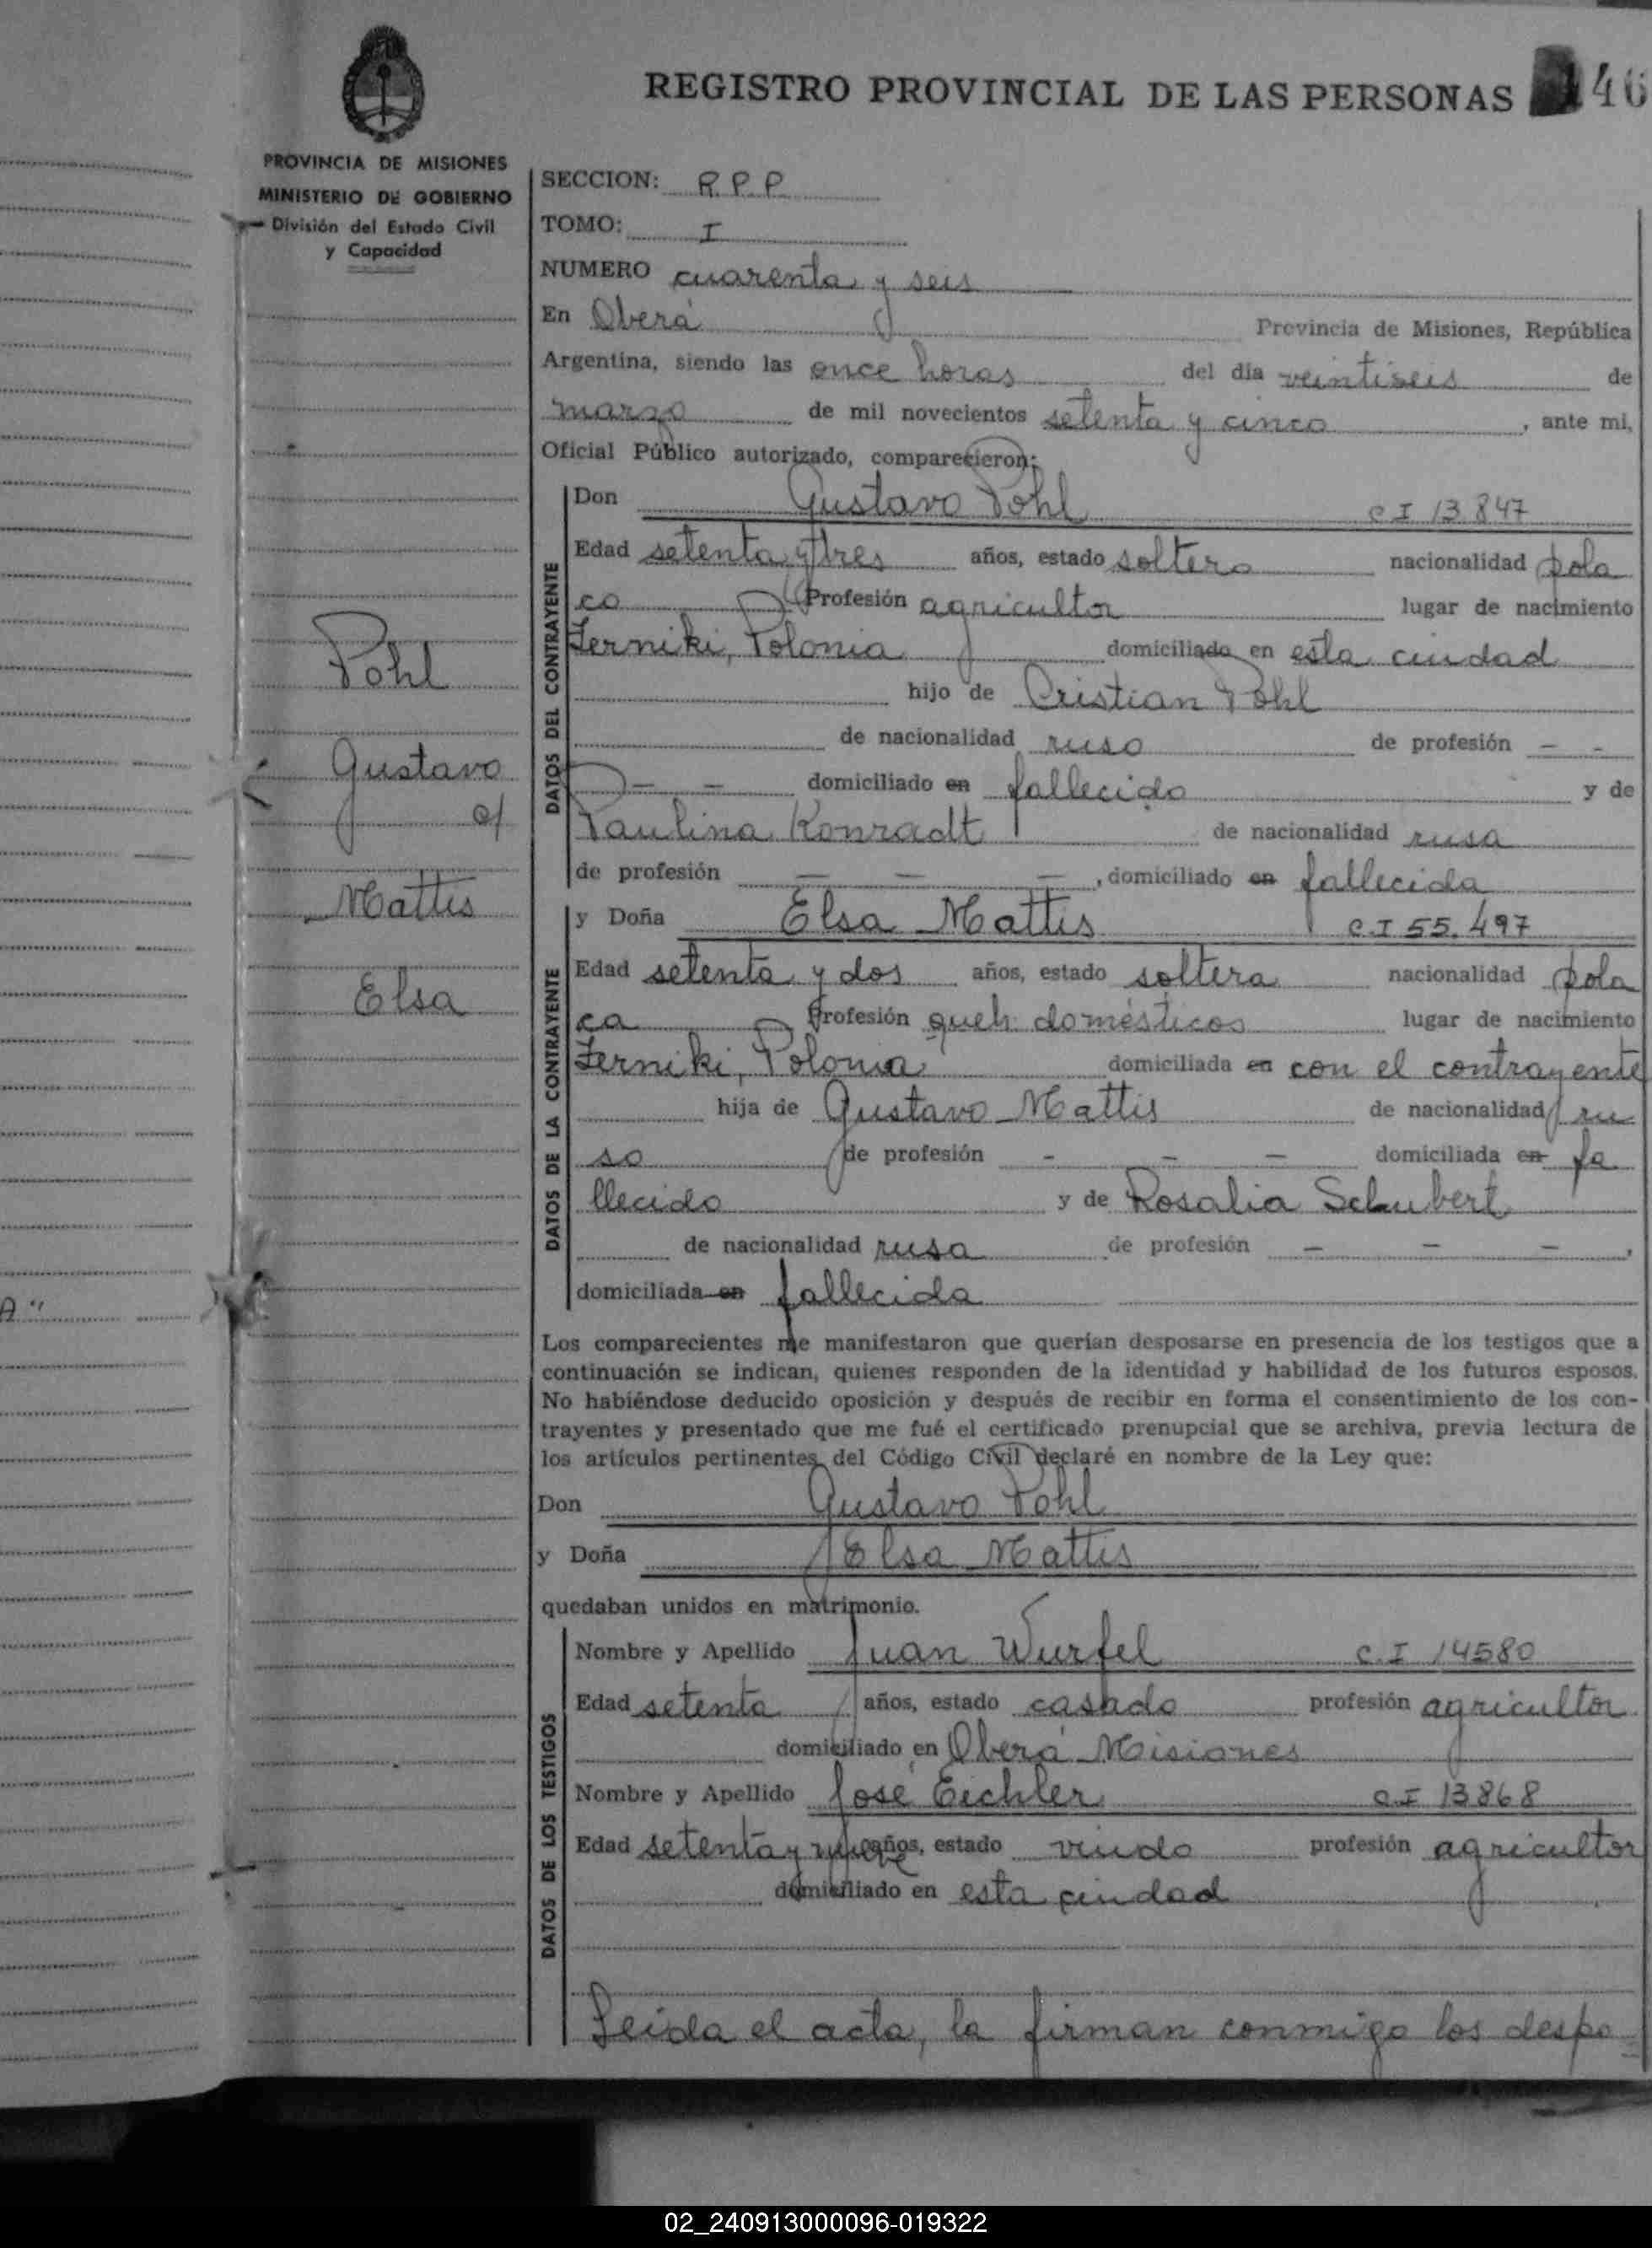 REGISTRO PROVINCIAL DE LAS PERSONAS 46
PROVINCIA DE MISIONES
MINISTERIO DE GOBIERNO
División del Estado Civil
y Capacidad
SECCION: R.P.P
TOMO: I
NUMERO cuarenta y seis
En Oberá Provincia de Misiones, República
Argentina, siendo las once horas del día veintiseis de
marzo de mil novecientos setenta y cinco, ante mi,
Oficial Público autorizado, comparecieron:
DATOS DEL CONTRAYENTE
Don Gustavo Pohl C I 13.847
Edad setenta y tres años, estado soltero nacionalidad pola
co Profesión agricultor lugar de nacimiento
Zerniki, Polonia domiciliado en esta ciudad
hijo de Cristian Pohl
de nacionalidad ruso de profesión - -
- - domiciliado en fallecido y de
Paulina Konradt de nacionalidad rusa
de profesión - - -, domiciliado en fallecida
Pohl
Gustavo
c/
Mattis
Elsa
DATOS DE LA CONTRAYENTE
y Doña Elsa Mattis C.I 55.497
Edad setenta y dos años, estado soltera nacionalidad pola
ca Profesión queh domésticos lugar de nacimiento
Zerniki, Polonia domiciliada en con el contrayente
hija de Gustavo Mattis de nacionalidad ru
so de profesión - - - domiciliada en fa
llecido y de Rosalia Schubert
de nacionalidad rusa de profesión - - -,
domiciliada en fallecida
A"
Los comparecientes me manifestaron que querían desposarse en presencia de los testigos que a
continuación se indican, quienes responden de la identidad y habilidad de los futuros esposos.
No habiéndose deducido oposición y después de recibir en forma el consentimiento de los con-
trayentes y presentado que me fué el certificado prenupcial que se archiva, previa lectura de
los artículos pertinentes del Código Civil declaré en nombre de la Ley que:
Don Gustavo Pohl
y Doña Elsa Mattis
quedaban unidos en matrimonio.
DATOS DE LOS TESTIGOS
Nombre y Apellido Juan Wurfel C.I 14580
Edad setenta años, estado casado profesión agricultor
domiciliado en Oberá Misiones
Nombre y Apellido José Eichler C.I 13868
Edad setenta y nueve años, estado viudo profesión agricultor
domiciliado en esta ciudad
Leida el acta, la firman conmigo los despo
02_240913000096-019322